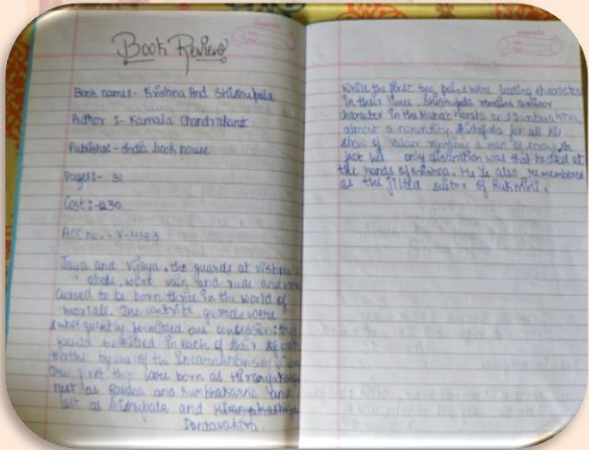 Book Review
Book name:- Krishna And Shishupala
Author :- Kamala Chandrakant
Publisher - India book house
Pages:- 31
Cost :- 230
ACC No. - V-4183
Jaya and Vijaya, the guards at Vishnu's
abode, were vain and rude and were
cursed to be born thrice in the world of
mortals. The contrite guards were
subsequently permitted one concession; they
would be killed in each of their
births by one of the incarnations of
first they were born as Hiranyaksha
next as Ravana and Kumbhakarna and
last as Shishupala and
Dantavakra.
While the first two pairs were leading characters
in their times, Shishupala remains a minor
character in the Mahabharata and Dantavakra,
almost a nonentity. Shishupala for all his
show of valour remains a man of
just his only distinction was that he died at
the hands of Krishna. He is also remembered
as the jilted suitor of Rukmini.